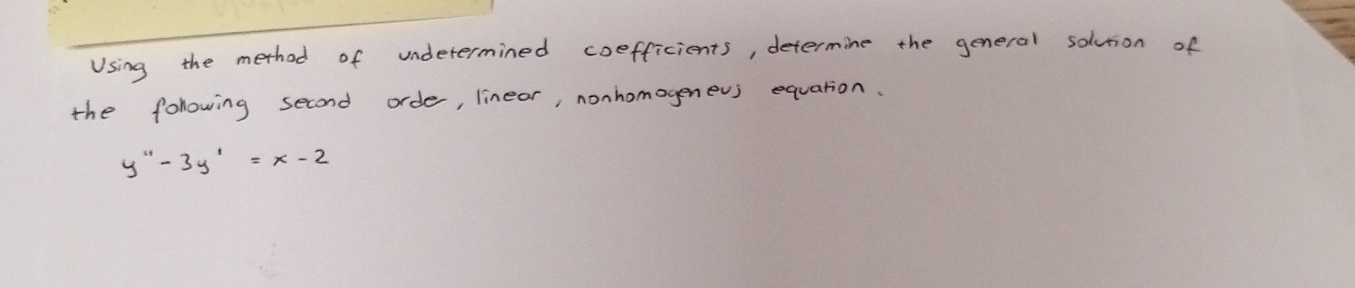 Using the method of undetermined coefficients, determine the general solution of
the following second order, linear, nonhomogeneus equation.
y" - 3y' = x - 2